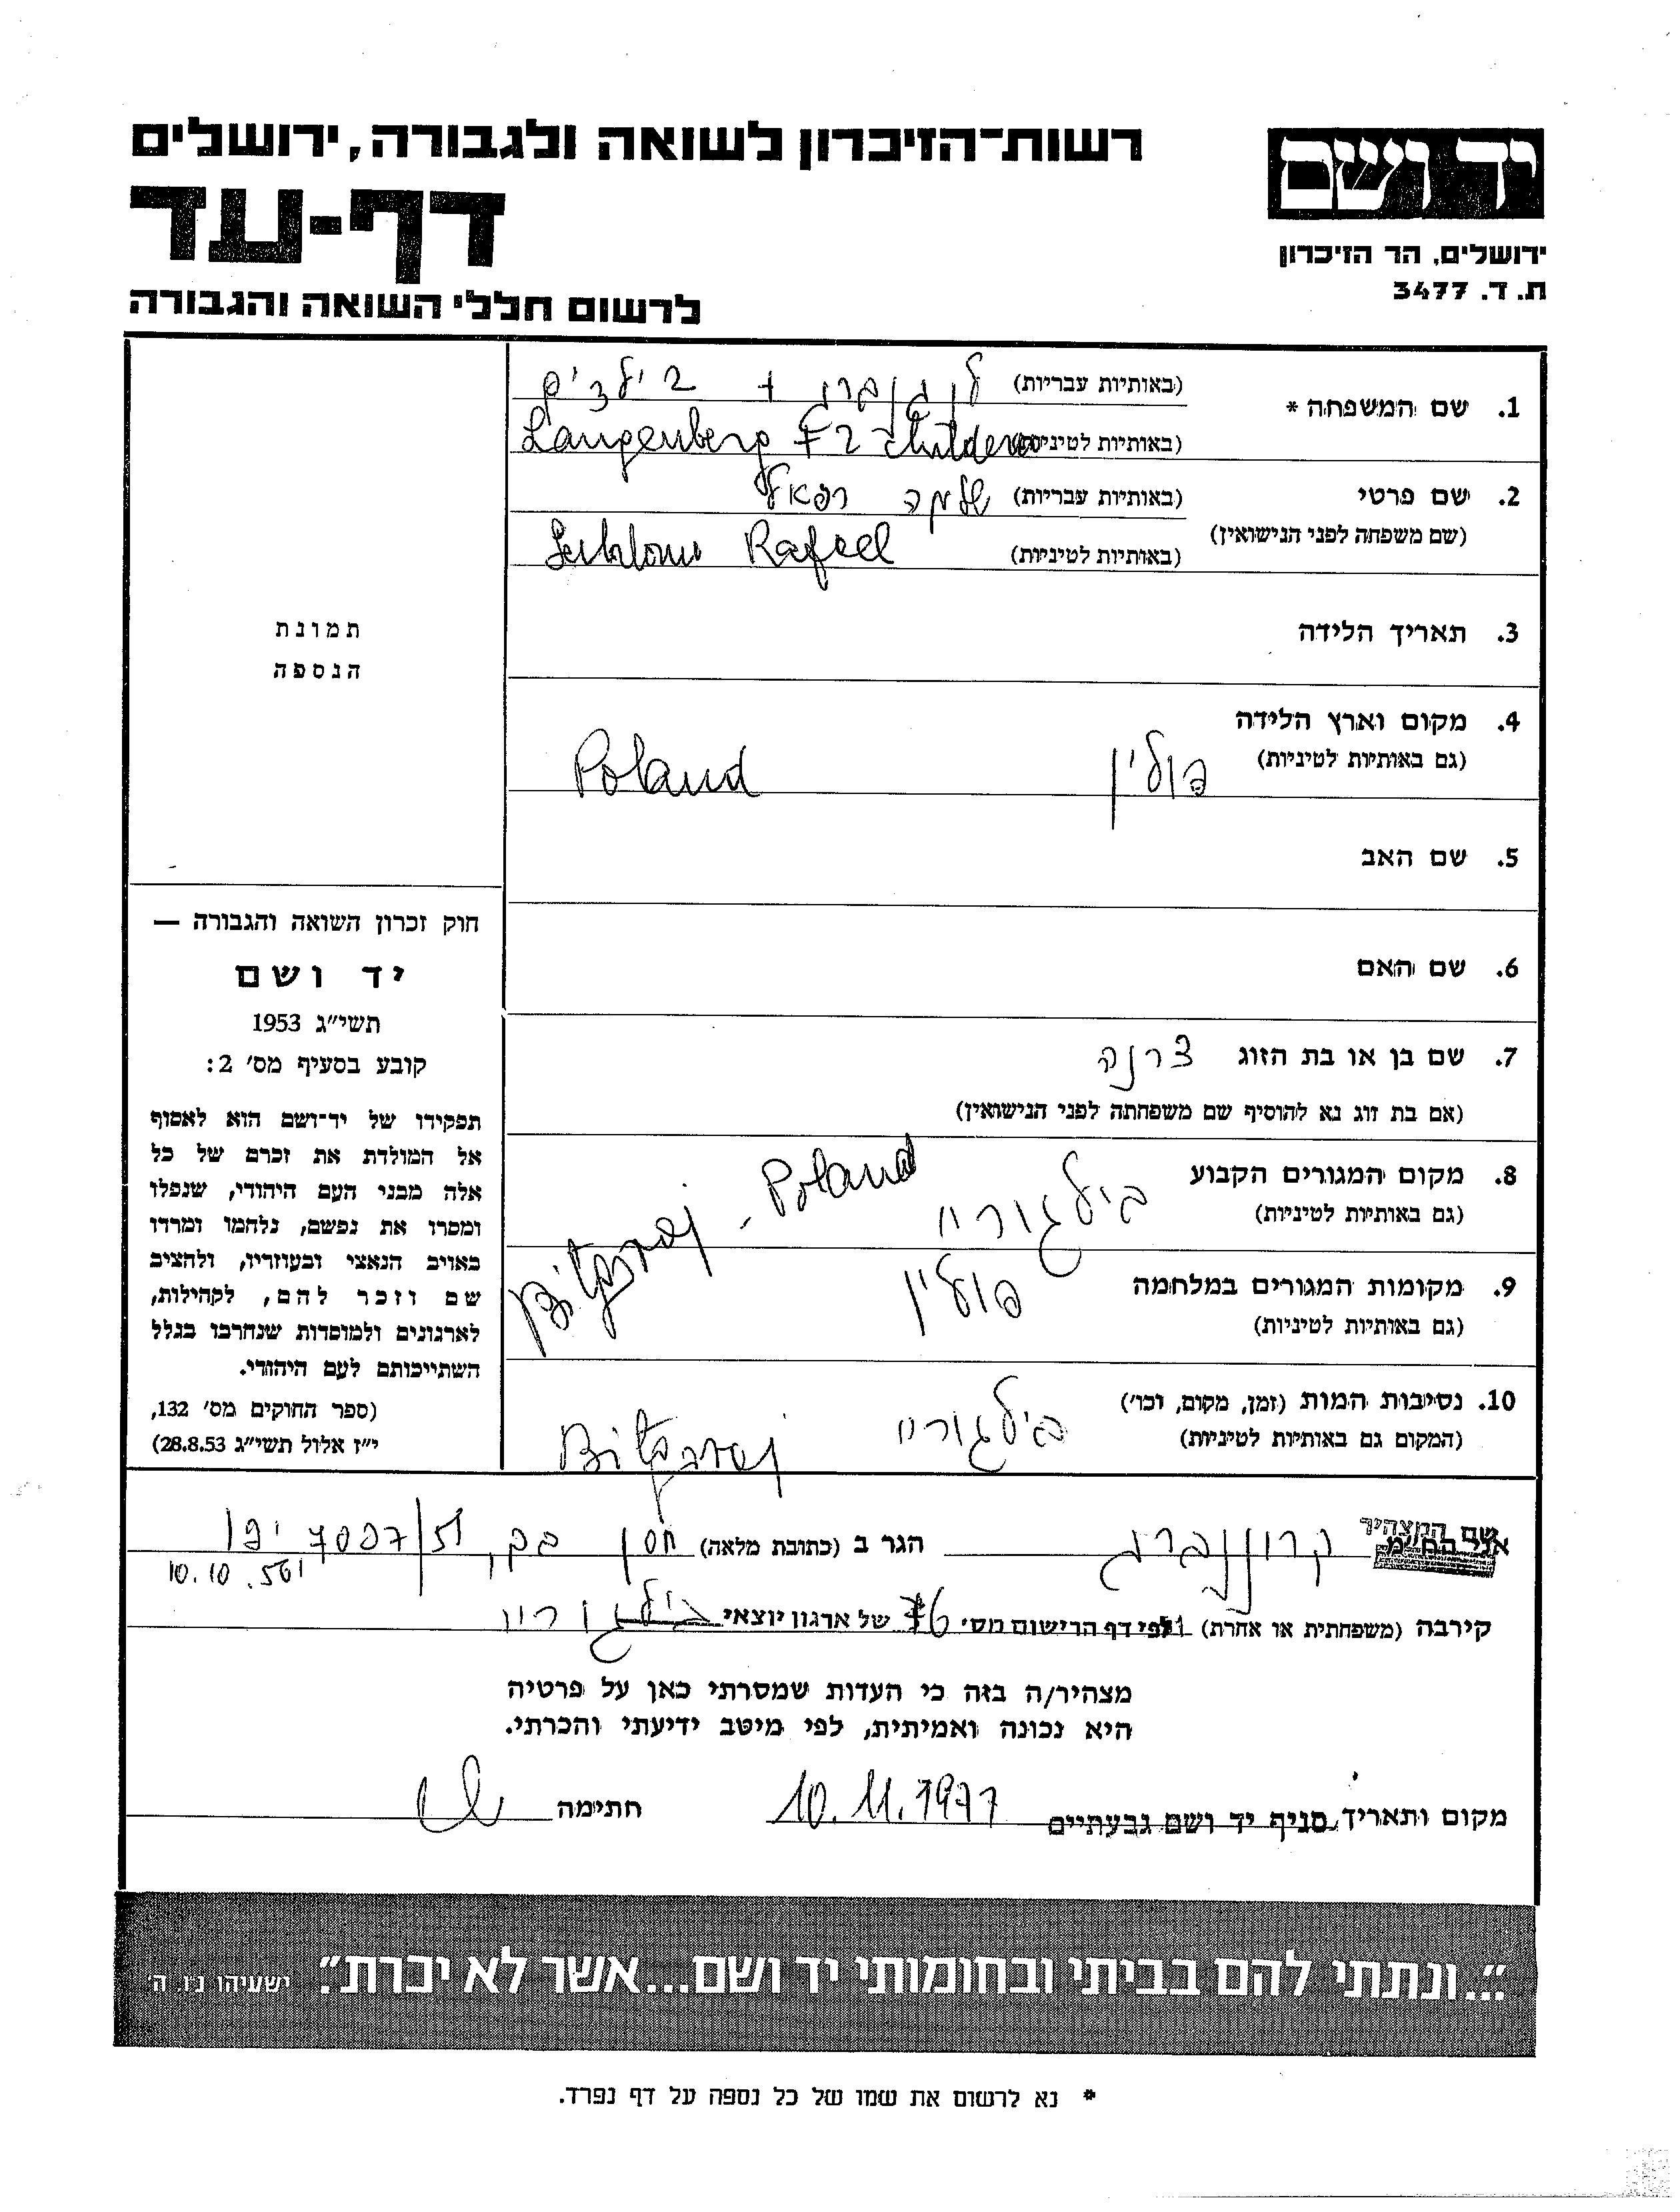 רשות־הזיכרון לשואה ולגבורה, ירושלים
יד ושם
דף-עד
ירושלים, הר הזיכרון
ת. ד. 3477
לרשום חללי השואה והגבורה
1. שם המשפחה * (באותיות עבריות) לנגנברג + 2 ילדים
(באותיות לטיניות) Langenberg + 2 children
2. שם פרטי (באותיות עבריות) שלמה רפאל
(שם משפחה לפני הנישואין) (באותיות לטיניות) Rafael
3. תאריך הלידה
4. מקום וארץ הלידה
(גם באותיות לטיניות) פולין Poland
5. שם האב
6. שם האם
7. שם בן או בת הזוג צרנה
(אם בת זוג נא להוסיף שם משפחתה לפני הנישואין)
8. מקום המגורים הקבוע בילגוריי
(גם באותיות לטיניות) Bilgoraj - Poland
9. מקומות המגורים במלחמה פולין
(גם באותיות לטיניות)
10. נסיבות המות (זמן, מקום, וכו') בילגוריי
(המקום גם באותיות לטיניות) Bilgoraj
תמונת
הנספה
חוק זכרון השואה והגבורה —
יד ושם
תשי״ג 1953
קובע בסעיף מס' 2:
תפקידו של יד־ושם הוא לאסוף
אל המולדת את זכרם של כל
אלה מבני העם היהודי, שנפלו
ומסרו את נפשם, נלחמו ומרדו
באויב הנאצי ובעוזריו, ולהציב
שם וזכר להם, לקהילות,
לארגונים ולמוסדות שנחרבו בגלל
השתייכותם לעם היהודי.
(ספר החוקים מס' 132,
י״ז אלול תשי״ג 28.8.53)
שם המצהיר
אני הח״מ קרוננברג הגר ב (כתובת מלאה) חסן בק, יפו
קירבה (משפחתית או אחרת) לפי דף הרישום מס' 76 של ארגון יוצאי בילגוריי
מצהיר/ה בזה כי העדות שמסרתי כאן על פרטיה
היא נכונה ואמיתית, לפי מיטב ידיעתי והכרתי.
מקום ותאריך סניף יד ושם גבעתיים 10.11.1977 חתימה
"...ונתתי להם בביתי ובחומותי יד ושם...אשר לא יכרת". ישעיהו נ״ו, ה'
* נא לרשום את שמו של כל נספה על דף נפרד.